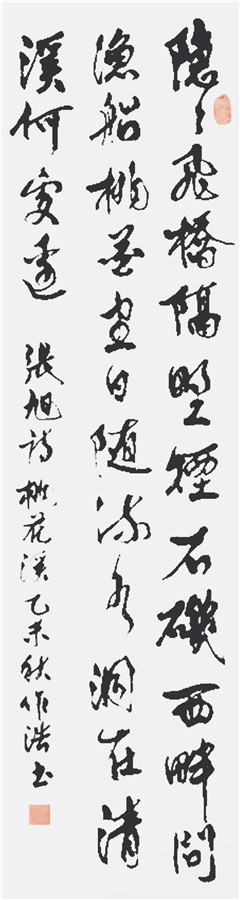 隱〻飛橋隔野煙石磯西畔問
漁船桃花盡日隨流水洞在清
溪何處邊 張旭詩桃花溪乙未秋作浩书